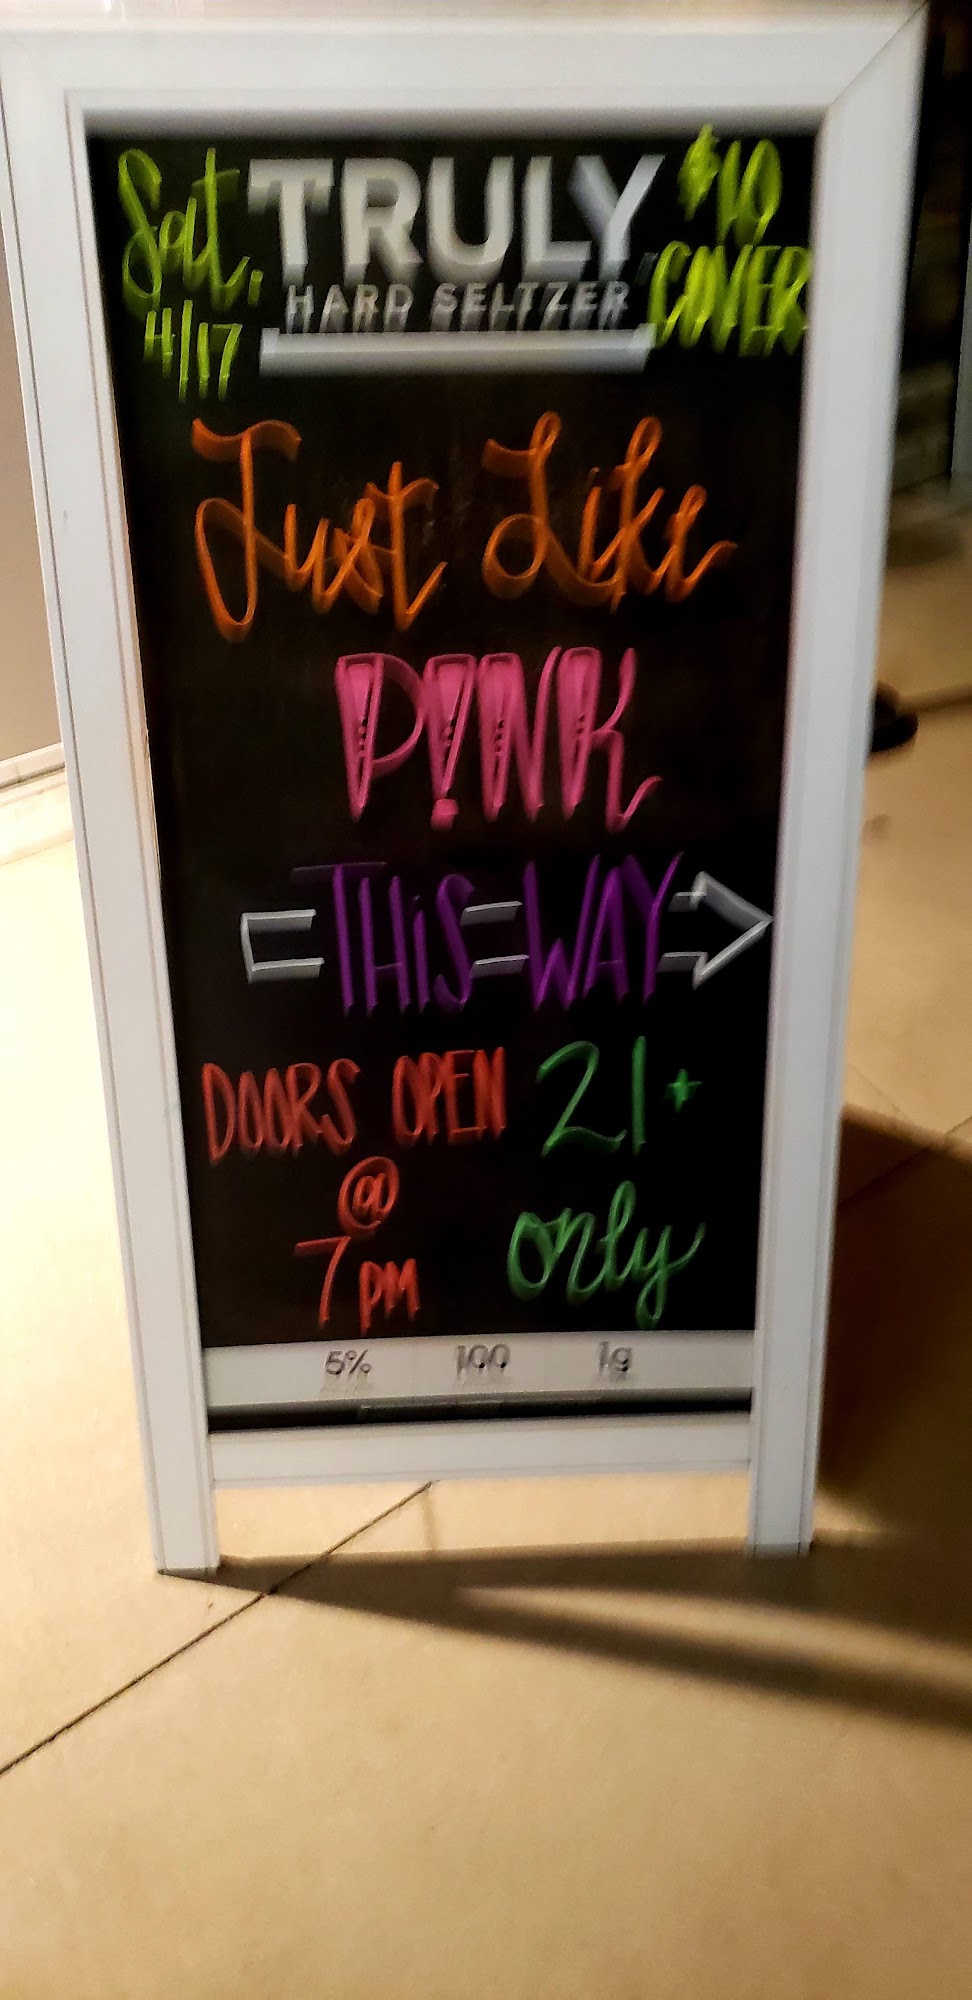 Sat.
4/17
TRULY
HARD SELTZER
$10
COVER
Just Like
P!NK
THiS WAY
DOORS OPEN
@
7 PM
21+
only
5% 100 1g